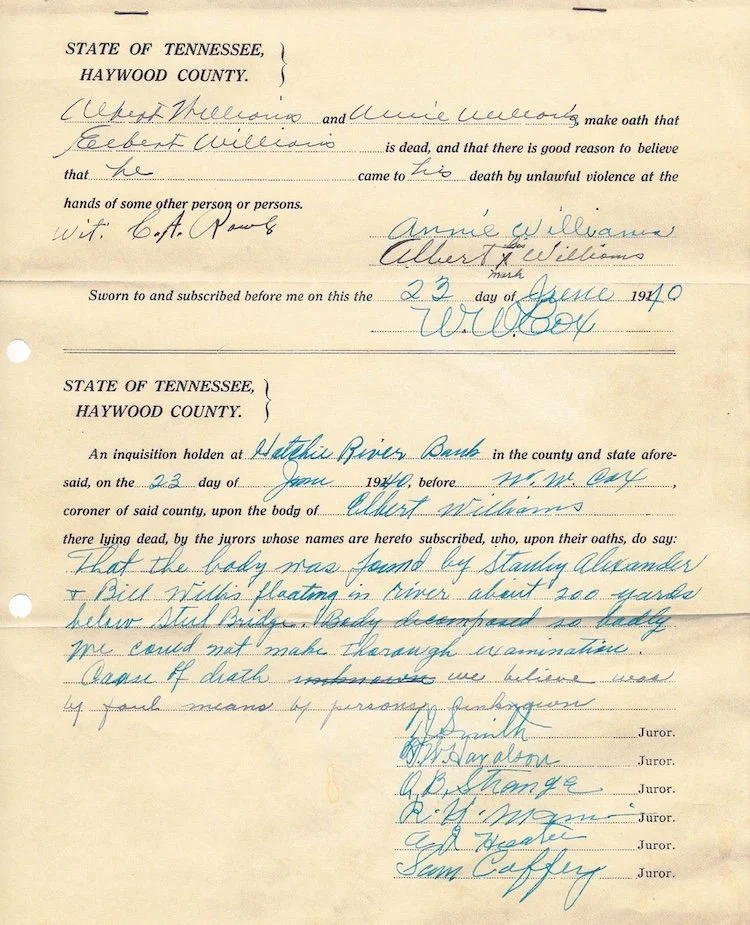 STATE OF TENNESSEE,
HAYWOOD COUNTY.
Albert Williams and Annie Williams, make oath that
Elbert Williams is dead, and that there is good reason to believe
that he came to his death by unlawful violence at the
hands of some other person or persons.
Wit: C.A. Rawls
Annie Williams
Albert his X mark Williams
Sworn to and subscribed before me on this the 23 day of June 1940
W.W. Cox
STATE OF TENNESSEE,
HAYWOOD COUNTY.
An inquisition holden at Hatchie River Bank in the county and state afore-
said, on the 23 day of June 1940, before W. W. Cox,
coroner of said county, upon the body of Elbert Williams
there lying dead, by the jurors whose names are hereto subscribed, who, upon their oaths, do say:
That the body was found by Stanley Alexander
+ Bill Willis floating in river about 200 yards
below Steel Bridge. Body decomposed so badly
we could not make thorough examination.
Cause of death unknown we believe was
by foul means by persons unknown
Smith Juror.
Juror.
A.B. Strange Juror.
Juror.
Juror.
Sam Caffery Juror.